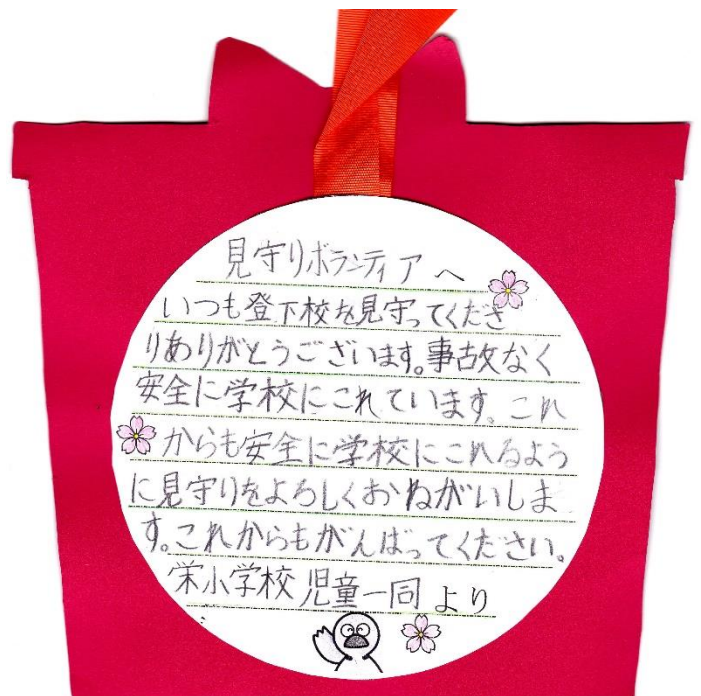 見守りボランティアへ
いつも登下校を見守ってくださ
りありがとうございます。事故なく
安全に学校にこれています。これ
からも安全に学校にこれるよう
に見守りをよろしくおねがいしま
す。これからもがんばってください。
栄小学校 児童一同より